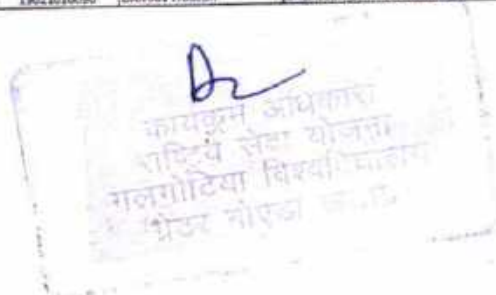 कार्यक्रम अधिकारी
राष्ट्रिय सेवा योजना
गलगोटिया विश्वविद्यालय
ग्रेटर नोएडा